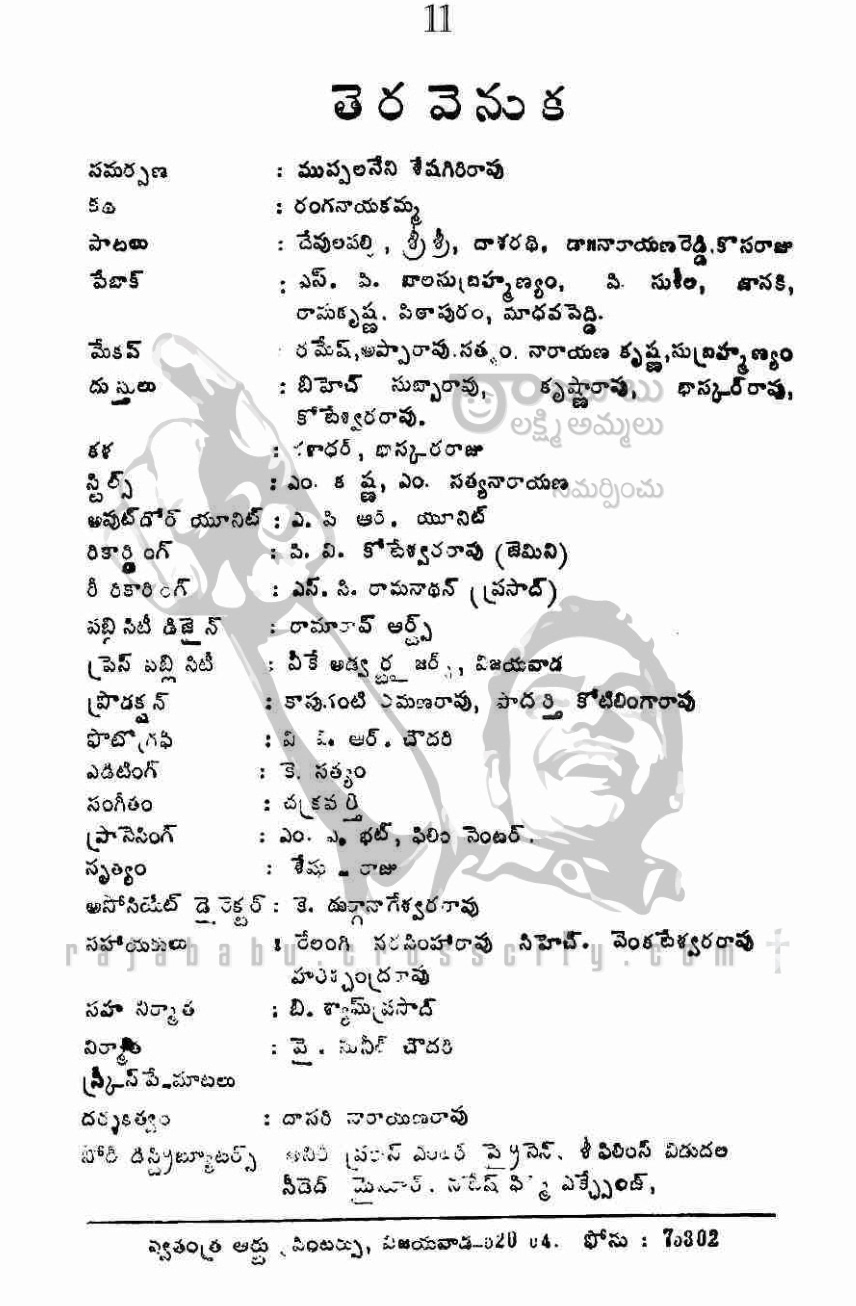 11
తెర వెనుక
సమర్పణ : ముప్పలనేని శేషగిరిరావు
కథ : రంగనాయకమ్మ
పాటలు : దేవులపల్లి, శ్రీ శ్రీ, దాశరథి, డా॥నారాయణరెడ్డి, కొసరాజు
పేబాక్ : ఎస్. పి. బాలసుబ్రహ్మణ్యం, పి. సుశీల, జానకి,
రామకృష్ణ. పిఠాపురం, మాధవపెద్ది.
మేకప్ : రమేష్, అప్పారావు. సత్యం. నారాయణ కృష్ణ, సుబ్రహ్మణ్యం
దుస్తులు : బిహెచ్ సుబ్బారావు, కృష్ణారావు, భాస్కర్‌రావు,
కోటేశ్వరరావు.
లక్ష్మి అమ్మలు
కళ : భాస్కరరాజు
సమర్పించు
స్టిల్స్ : ఎం. కృష్ణ, ఎం. సత్యనారాయణ
అవుట్‌డోర్ యూనిట్ : ఎ. పి ఆర్. యూనిట్
రికార్డింగ్ : పి. వి. కోటేశ్వరరావు (జెమిని)
రీ రికారింగ్ : ఎస్. సి. రామనాథన్ (ప్రసాద్)
పబ్లిసిటీ డిజైన్ : రామారావ్ ఆర్ట్స్
ప్రెస్ పబ్లిసిటీ : వీకే అడ్వర్టైజర్స్, విజయవాడ
ప్రొడక్షన్ : రమణరావు, పాదర్తి కోటిలింగారావు
ఫొటోగ్రఫి : ఆర్. చౌదరి
ఎడిటింగ్ : కె. సత్యం
సంగీతం : చక్రవర్తి
ప్రాసెసింగ్ : ఎం. ఎ. భట్, ఫిలిం సెంటర్.
నృత్యం : శేషు - రాజు
అసోసియేట్ డైరెక్టర్ : కె. దుర్గానాగేశ్వరరావు
సహాయకులు : రేలంగి నరసింహారావు సిహెచ్. వెంకటేశ్వరరావు
rajababu.crosscity.com
హరిశ్చంద్రరావు
సహ నిర్మాత : బి. శ్యామ్‌ప్రసాద్
నిర్మాత : వై. సునీల్ చౌదరి
స్క్రీన్‌పే-మాటలు
దర్శకత్వం : దాసరి నారాయణరావు
డిస్ట్రిబ్యూటర్స్ శ్రీ ఫిలింస్ విడుదల
సీడెడ్ మైసూర్. ఎక్ఛేంజ్,
స్వతంత్ర ఆర్టు ప్రింటర్సు, విజయవాడ ఫోను :